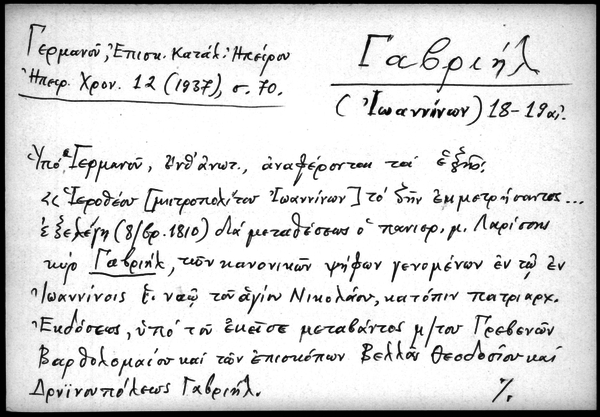 Γερμανοῦ, Ἐπισκ. Κατάλ. Ἠπείρου
Ἠπειρ. Χρον. 12 (1937), σ. 70.
Γαβριήλ
(Ἰωαννίνων) 18-19 αἰ.
Ὑπό Γερμανοῦ, ἔνθ' ἀνωτ., ἀναφέρονται τά ἑξῆς:
<< Ἱεροθέου [μητροπολίτου Ἰωαννίνων] τό ζῆν ἐκμετρήσαντος...
ἐξελέγη (8/βρ. 1810) διά μεταθέσεως ὁ πανιερ. μ. Λαρίσσης
κύρ Γαβριήλ, τῶν κανονικῶν ψήφων γενομένων ἐν τῷ ἐν
Ἰωαννίνοις ἱ. ναῷ τοῦ ἁγίου Νικολάου, κατόπιν πατριαρχ.
Ἐκδόσεως, ὑπό τοῦ ἐκεῖσε μεταβάντος μ/του Γρεβενῶν
Βαρθολομαίου καί τῶν ἐπισκόπων Βελλᾶς Θεοδοσίου καί
Δρυϊνουπόλεως Γαβριήλ.
%.